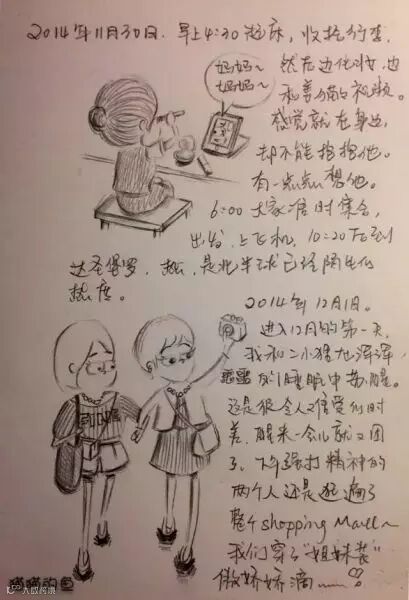 2014年11月30日. 早上4:30起床,收拾行李.
妈妈~
妈妈~
然后边化妆,边
和姜糖视频。
感觉就在身边,
却不能抱抱他。
有一点点想他。
6:00 大家准时集合,
出发,上飞机, 10:20左右到
达圣保罗, 热, 是北半球已经陌生的
热度。
2014年12月1日。
进入12月的第一天,
我和二小猪九浑浑
噩噩的睡眠中苏醒。
还是很令人难受的时
差,醒来一会儿就又困
了、下午强打精神的
两个人还是逛遍了
整个shopping Mall~
我们穿了"姐妹装"
傲娇娇滴……?
猫猫的鱼